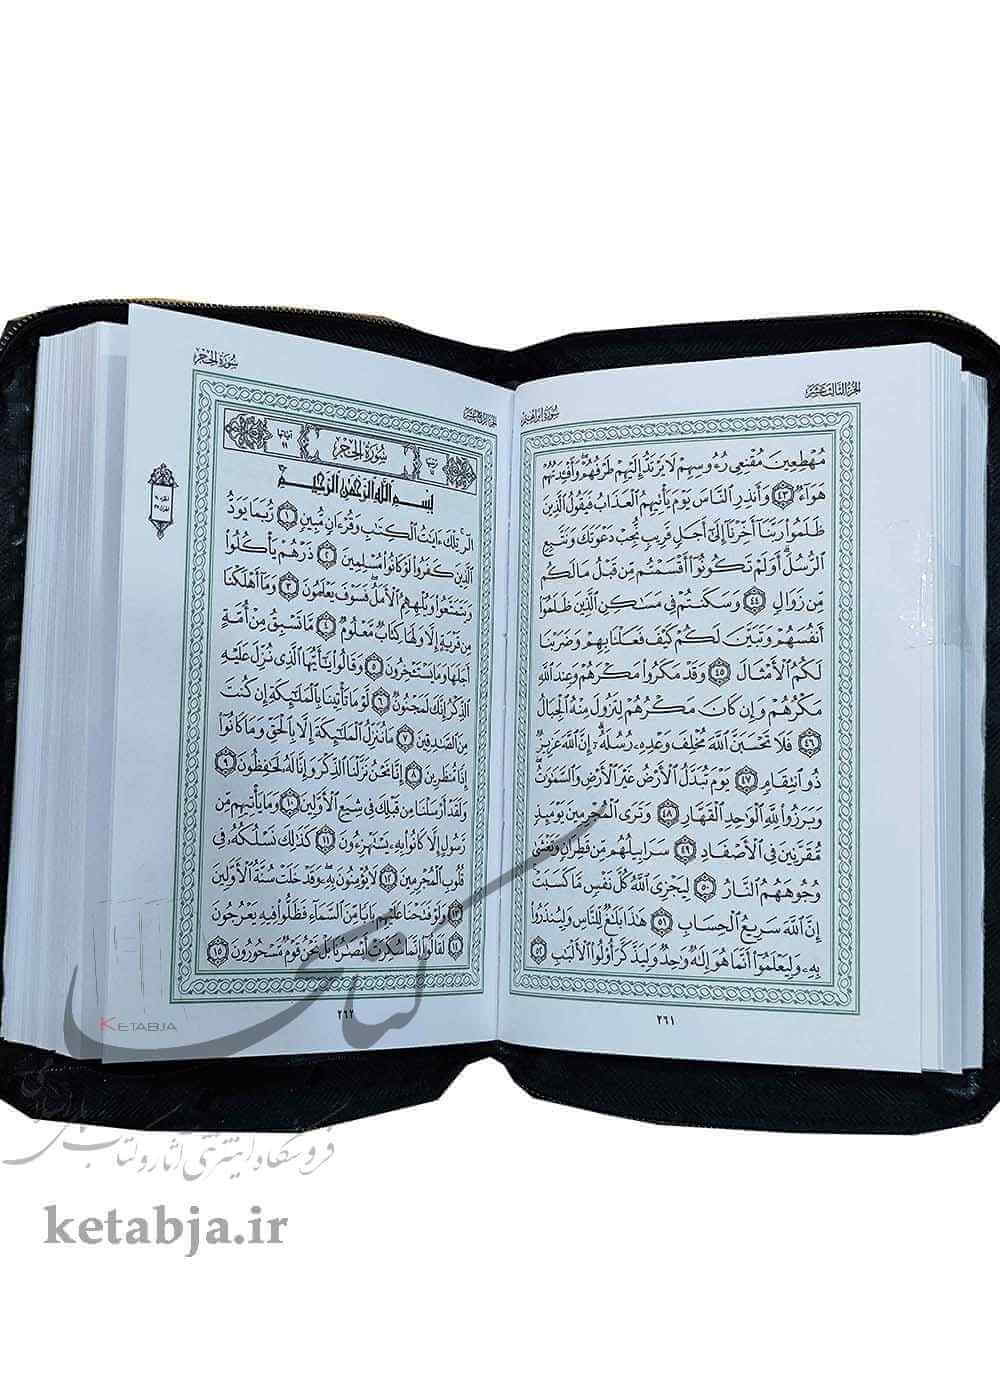 الجزء الثالث عشر
سورة إبراهيم
مُهْطِعِينَ مُقْنِعِي رُءُوسِهِمْ لَا يَرْتَدُّ إِلَيْهِمْ طَرْفُهُمْ وَأَفْـِٔدَتُهُمْ
هَوَآءٌ ٤٣ وَأَنذِرِ ٱلنَّاسَ يَوْمَ يَأْتِيهِمُ ٱلْعَذَابُ فَيَقُولُ ٱلَّذِينَ
ظَلَمُوا۟ رَبَّنَآ أَخِّرْنَآ إِلَىٰٓ أَجَلٍ قَرِيبٍ نُّجِبْ دَعْوَتَكَ وَنَتَّبِعِ
ٱلرُّسُلَ أَوَلَمْ تَكُونُوٓا۟ أَقْسَمْتُم مِّن قَبْلُ مَا لَكُم
مِّن زَوَالٍ ٤٤ وَسَكَنتُمْ فِى مَسَـٰكِنِ ٱلَّذِينَ ظَلَمُوٓا۟
أَنفُسَهُمْ وَتَبَيَّنَ لَكُمْ كَيْفَ فَعَلْنَا بِهِمْ وَضَرَبْنَا
لَكُمُ ٱلْأَمْثَالَ ٤٥ وَقَدْ مَكَرُوا۟ مَكْرَهُمْ وَعِندَ ٱللَّهِ
مَكْرُهُمْ وَإِن كَانَ مَكْرُهُمْ لِتَزُولَ مِنْهُ ٱلْجِبَالُ
٤٦ فَلَا تَحْسَبَنَّ ٱللَّهَ مُخْلِفَ وَعْدِهِۦ رُسُلَهُۥٓ إِنَّ ٱللَّهَ عَزِيزٌ
ذُو ٱنتِقَامٍ ٤٧ يَوْمَ تُبَدَّلُ ٱلْأَرْضُ غَيْرَ ٱلْأَرْضِ وَٱلسَّمَـٰوَٰتُ
وَبَرَزُوا۟ لِلَّهِ ٱلْوَٰحِدِ ٱلْقَهَّارِ ٤٨ وَتَرَى ٱلْمُجْرِمِينَ يَوْمَئِذٍ
مُّقَرَّنِينَ فِى ٱلْأَصْفَادِ ٤٩ سَرَابِيلُهُم مِّن قَطِرَانٍ وَتَغْشَىٰ
وُجُوهَهُمُ ٱلنَّارُ ٥٠ لِيَجْزِىَ ٱللَّهُ كُلَّ نَفْسٍ مَّا كَسَبَتْ
إِنَّ ٱللَّهَ سَرِيعُ ٱلْحِسَابِ ٥١ هَـٰذَا بَلَـٰغٌ لِّلنَّاسِ وَلِيُنذَرُوا۟
بِهِۦ وَلِيَعْلَمُوٓا۟ أَنَّمَا هُوَ إِلَـٰهٌ وَٰحِدٌ وَلِيَذَّكَّرَ أُو۟لُوا۟ ٱلْأَلْبَـٰبِ ٥٢
٢٦١
الجزء الرابع عشر
سورة الحجر
سُورَةُ الحِجْرِ
آياتها
٩٩
بِسْمِ ٱللَّهِ ٱلرَّحْمَـٰنِ ٱلرَّحِيمِ
الٓر تِلْكَ ءَايَـٰتُ ٱلْكِتَـٰبِ وَقُرْءَانٍ مُّبِينٍ ١ رُّبَمَا يَوَدُّ
ٱلَّذِينَ كَفَرُوا۟ لَوْ كَانُوا۟ مُسْلِمِينَ ٢ ذَرْهُمْ يَأْكُلُوا۟
وَيَتَمَتَّعُوا۟ وَيُلْهِهِمُ ٱلْأَمَلُ فَسَوْفَ يَعْلَمُونَ ٣ وَمَآ أَهْلَكْنَا
مِن قَرْيَةٍ إِلَّا وَلَهَا كِتَابٌ مَّعْلُومٌ ٤ مَّا تَسْبِقُ مِنْ أُمَّةٍ
أَجَلَهَا وَمَا يَسْتَـْٔخِرُونَ ٥ وَقَالُوا۟ يَـٰٓأَيُّهَا ٱلَّذِى نُزِّلَ عَلَيْهِ
ٱلذِّكْرُ إِنَّكَ لَمَجْنُونٌ ٦ لَّوْ مَا تَأْتِينَا بِٱلْمَلَـٰٓئِكَةِ إِن كُنتَ
مِنَ ٱلصَّـٰدِقِينَ ٧ مَا نُنَزِّلُ ٱلْمَلَـٰٓئِكَةَ إِلَّا بِٱلْحَقِّ وَمَا كَانُوٓا۟
إِذًا مُّنظَرِينَ ٨ إِنَّا نَحْنُ نَزَّلْنَا ٱلذِّكْرَ وَإِنَّا لَهُۥ لَحَـٰفِظُونَ ٩
وَلَقَدْ أَرْسَلْنَا مِن قَبْلِكَ فِى شِيَعِ ٱلْأَوَّلِينَ ١٠ وَمَا يَأْتِيهِم مِّن
رَّسُولٍ إِلَّا كَانُوا۟ بِهِۦ يَسْتَهْزِءُونَ ١١ كَذَٰلِكَ نَسْلُكُهُۥ فِى
قُلُوبِ ٱلْمُجْرِمِينَ ١٢ لَا يُؤْمِنُونَ بِهِۦ وَقَدْ خَلَتْ سُنَّةُ ٱلْأَوَّلِينَ
١٣ وَلَوْ فَتَحْنَا عَلَيْهِم بَابًا مِّنَ ٱلسَّمَآءِ فَظَلُّوا۟ فِيهِ يَعْرُجُونَ
١٤ لَقَالُوٓا۟ إِنَّمَا سُكِّرَتْ أَبْصَـٰرُنَا بَلْ نَحْنُ قَوْمٌ مَّسْحُورُونَ ١٥
٢٦٢
KETABJA
ketabja.ir